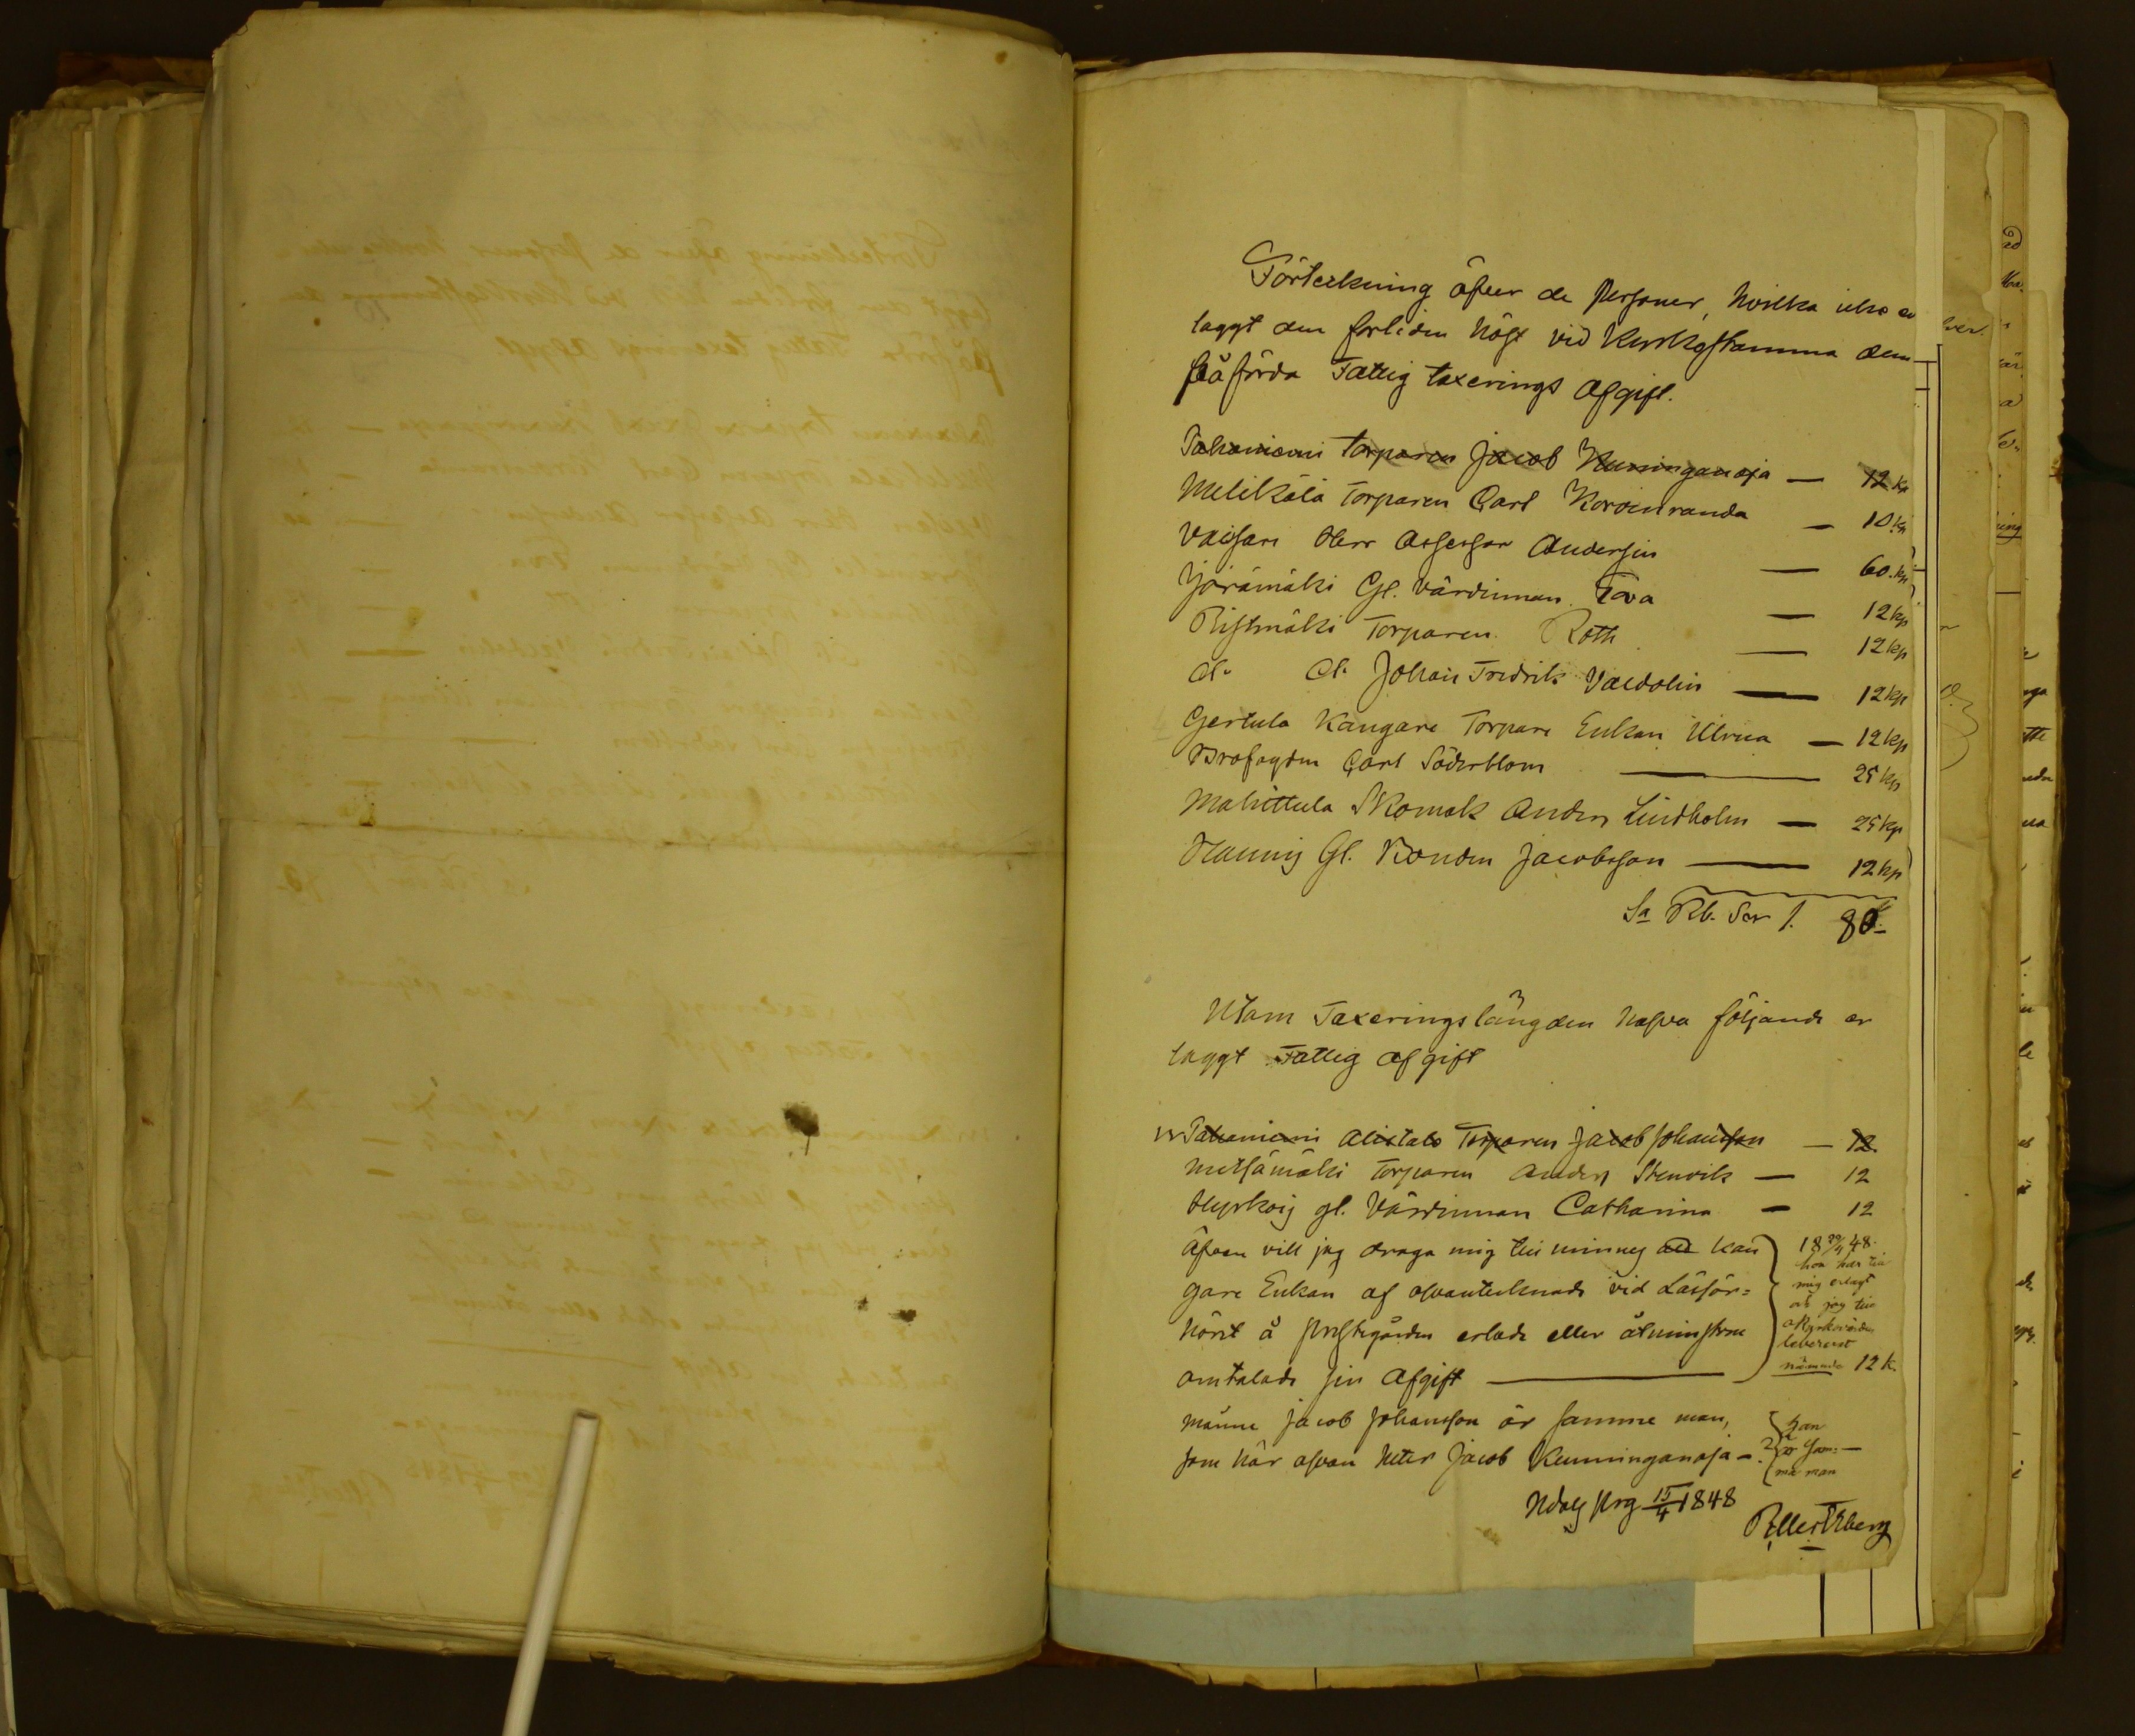 Förteckning öfver de Personer, hvilka icke er
laggt den forliden höst vid Kyrkostamma dem
påförda Fattig taxerings Afgift.
Pahaniemi torparen Jacob Kuninganoja — 12 kp
Melikälä Torparen Carl Korvenranda — 10 kp
Vaisare Herr Assessor Andersin — 60. kp
Jyrämäki Gl. Värdinnan Eva — 12 kp
Ristmäki Torparen Roth — 12 kp
d:o d:o Johan Fredrik Valdolin — 12 kp
Gertula Kangare Torpare Enkan Ulrica — 12 kp
Brofogden Carl Söderblom — 25 kp
Mahittula Skomak Anders Lindholm — 25 kp
Haunis Gl. Bonden Jacobsson — 12 kp
Sa Rb. Sor 1. 80.
Utom Taxeringslängden hafva följande er
laggt Fattig afgift
Pahaniemi Alistalo Torparen Jacob Johansson — 12.
Metsämäki Torparen Anders Stenvik — 12
Hyrkois gl. Värdinnan Catharina — 12
Äfven vill jag draga mig till minnes att Kan
gare Enkan af ofvantecknade vid Läsför=
höret å prestgården erlade eller åtminstone
omtalade sin Afgift —
18 29/4 48.
hon har till
mig erlagt
och jag till
Kyrkovärden
levererat
nämnde 12 k.
månne Jacob Johansson är samme man,
som här ofvan heter Jacob Kuninganoja - ?
han
är sam=
me man
Ndals prg 15/4 1848